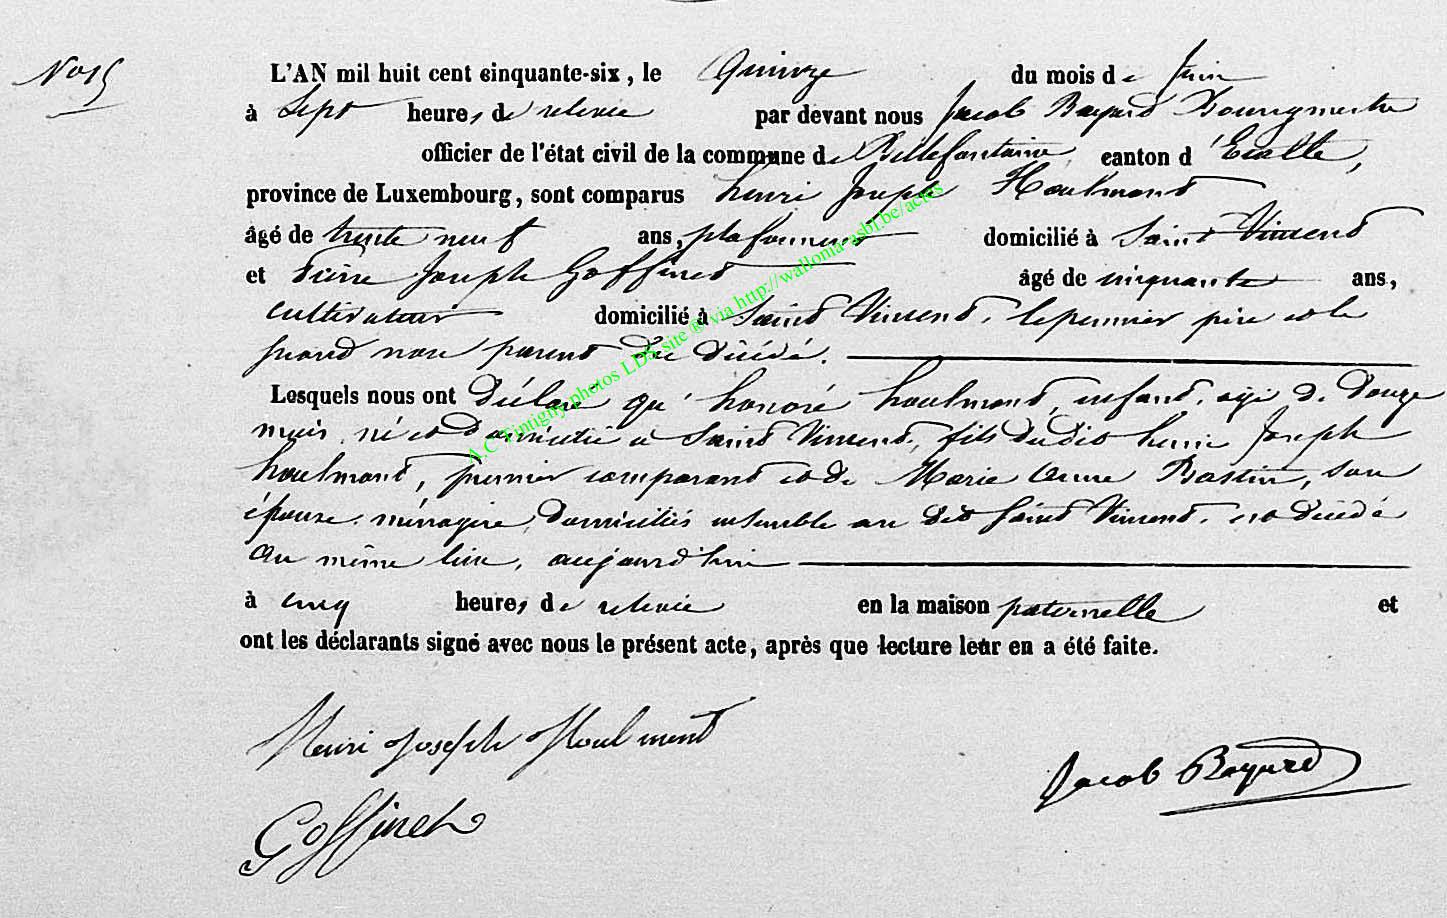 No 15
L'AN mil huit cent cinquante-six, le Quinze du mois de Juin
à Sept heures de relevée par devant nous Jacob Bayard Bourgmestre
officier de l'état civil de la commune de Bellefontaine, canton d'Etalle,
province de Luxembourg, sont comparus henri Joseph Houlmont
âgé de trente neuf ans, plafonneur domicilié à Saint Vincent
et Pierre Joseph Goffinet âgé de cinquante ans,
cultivateur domicilié à Saint Vincent, le premier père et le
second non parent du décédé.
Lesquels nous ont Déclaré qu'honoré houlmont, enfant, agé de Douze
mois, né et domicilié a Saint Vincent, fils dudit henri Joseph
houlmont, premier comparant et de Marie Anne Bastin, son
épouse, ménagère, Domiciliés ensemble au dit Saint Vincent, est décédé
au même lieu, aujourd'hui
à cinq heures de relevée en la maison paternelle et
ont les déclarants signé avec nous le présent acte, après que lecture leur en a été faite.
Henri Joseph Houlmont
Jacob Bayard
Goffinet
A.C. Tintigny photos LDS site @ via http://wallonia-asbl.be/actes